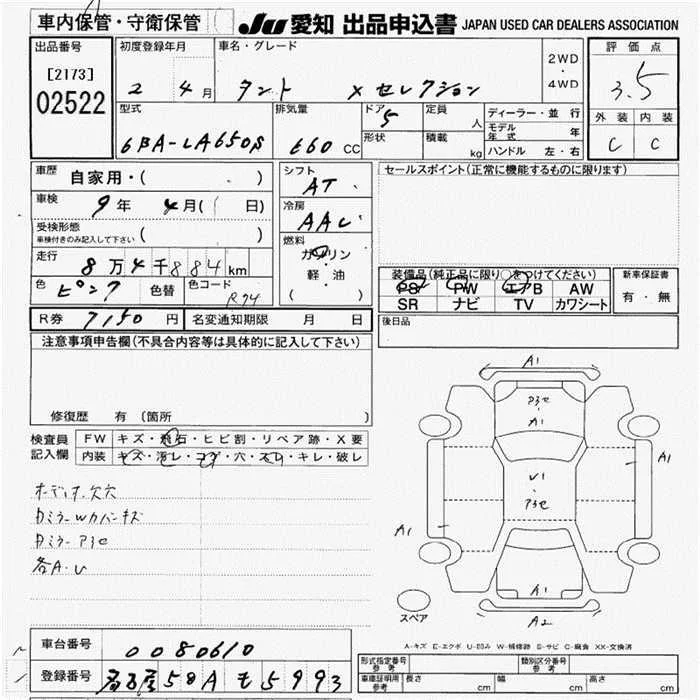 車内保管・守衛保管
JU 愛知 出品申込書 JAPAN USED CAR DEALERS ASSOCIATION
出品番号
[2173]
02522
初度登録年月
2 4月
車名・グレード
タント Xセレクション
2WD
・
4WD
型式
6BA-LA650S
排気量
660 CC
ドア
5
形状
定員
人
積載
kg
ディーラー・並 行
モデル年式 年
ハンドル 左・右
評価点
3.5
外装 内装
C C
車歴
自家用・( )
車検
9年 4月( 日)
受検形態
車検付きのみ記入して下さい ( )
走行
8万4千884km
色
ピンク 色替
色コード
R74
シフト
AT
冷房
AAC
燃料
ガソリン
・
軽・油
( )
セールスポイント(正常に機能するものに限ります)
装備品(純正品に限り○をつけてください)
PS PW エアB AW
SR ナビ TV カワシート
新車保証書
有・無
後日品
R券 7150円 名変通知期限 月 日
注意事項申告欄(不具合内容等は具体的に記入して下さい)
修復歴 有 (箇所 )
検査員記入欄
FW キズ・飛石・ヒビ割・リペア跡・X要
内装 キズ・汚レ・コゲ・穴・スレ・キレ・破レ
オーディオ欠穴
各A・U
A1
A1
U1
A1
A1
A1
A2
スペア
A-キズ E-エクボ U-凹み W-補修跡 S-サビ C-腐食 XX-交換済
車台番号
0080610
登録番号
名古屋 58A も 5993
形式指定番号
参考
類別区分番号
参考
車庫証明用
参考
長さ cm 幅 cm 高さ cm